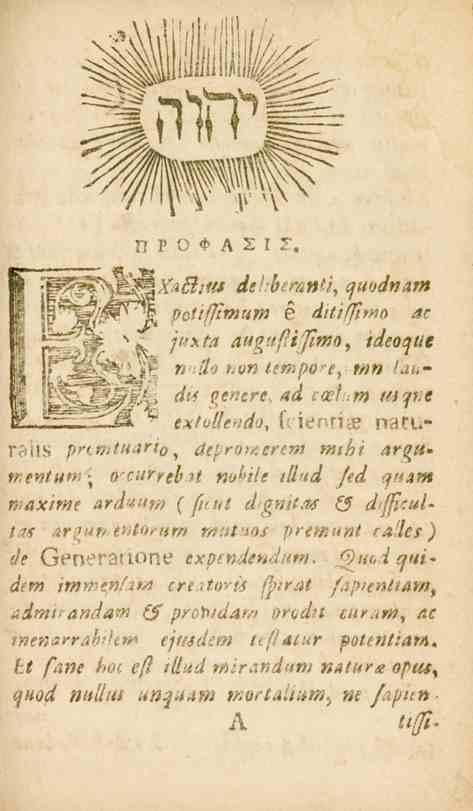 יהוה
ΠΡΟΦΑΣΙΣ.
EXactius deliberanti, quodnam
potissimum ê ditissimo ac
juxta augustissimo, ideoque
nullo non tempore, omni lau-
dis genere, ad cœlum usque
extollendo, scientiæ natu-
ralis promtuario, depromerem mihi argu-
mentum; occurrebat nobile illud sed quam
maxime arduum (sicut dignitas & difficul-
tas argumentorum mutuos premunt calles)
de Generatione expendendum. Quod qui-
dem immensam creatoris spirat sapientiam,
admirandam & providam prodit curam, ac
inenarrabilem ejusdem testatur potentiam.
Et sane hoc est illud mirandum naturæ opus,
quod nullus unquam mortalium, ne sapien-
A tissi-